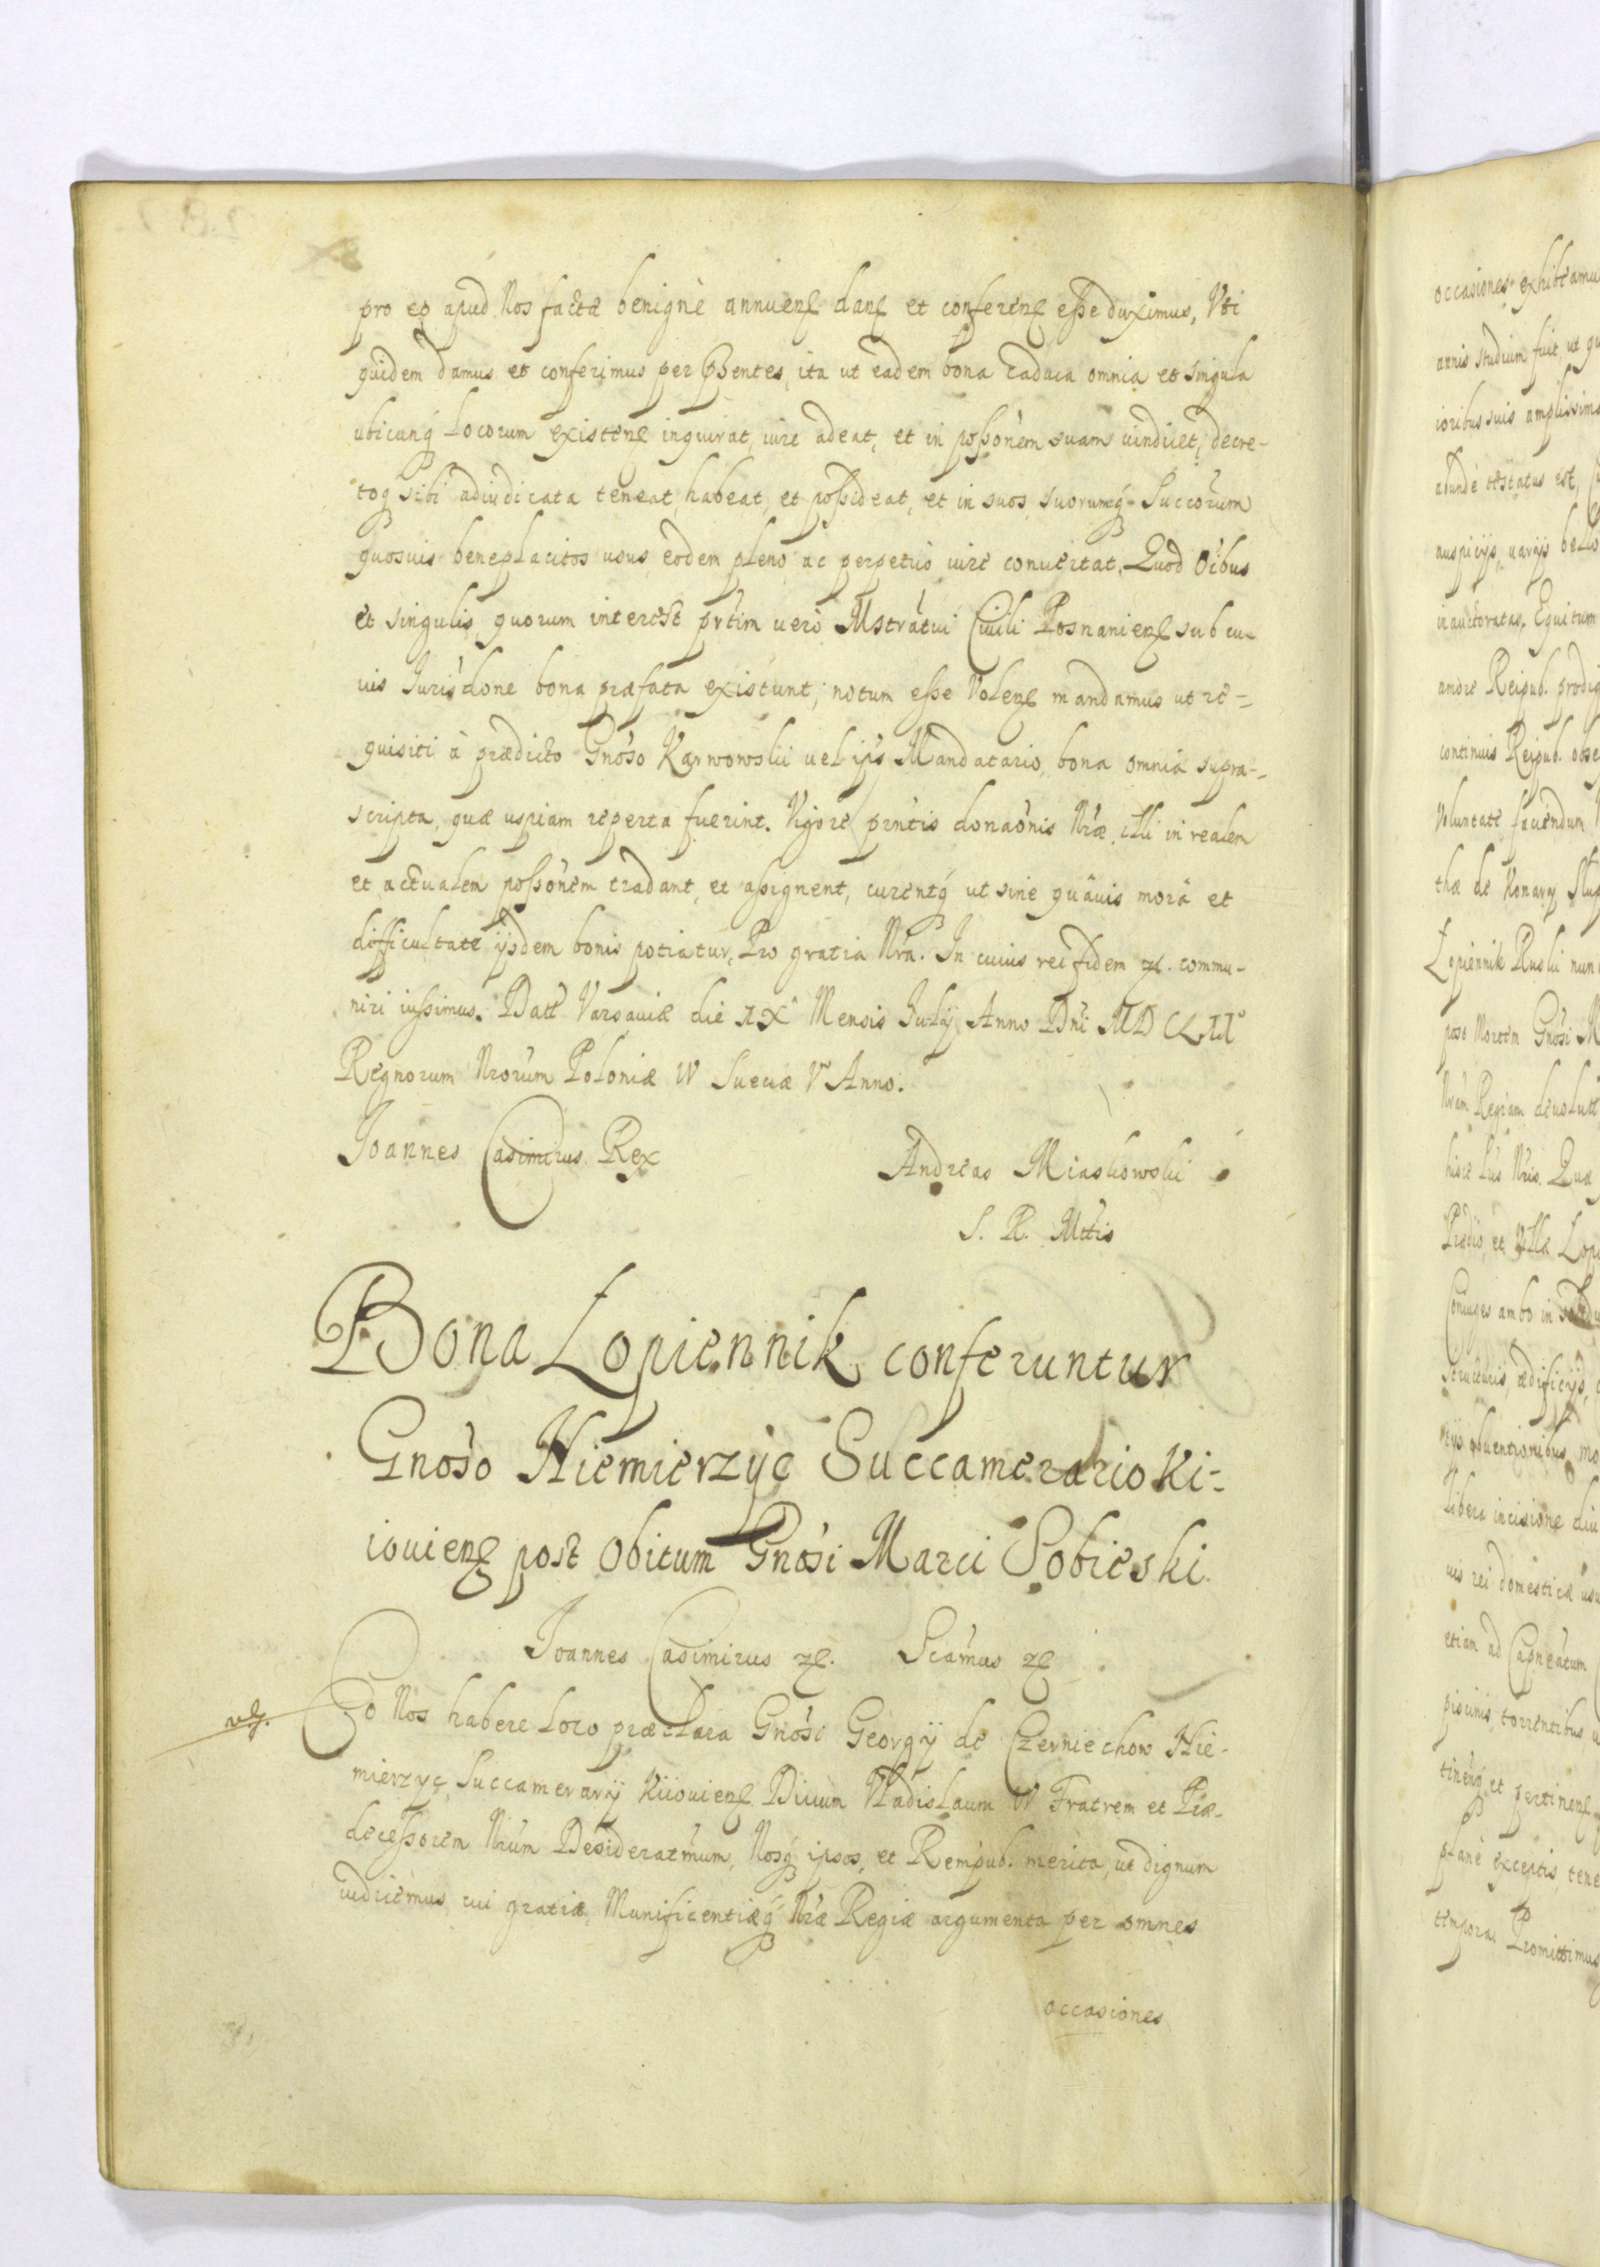 pro eo apud Nos factæ benignè annuen͠ dan͠ et conferen͠ esse duximus, Uti
quidem damus et conferimus per Pñtes, ita ut eadem bona caduca omnia et singula
ubicunq́ Locorum existen͠ inquirat, iure adeat, et in possonem suam vindicet, decre-
toq́ sibi adiudicata teneat, habeat, et possideat, et in suos, suorumq́ Succorum
quosuis beneplacitos usus, eodem pleno ac perpetuò iure conuertat. Quod Oibus
et singulis quorum interest prtim uerò Mstratui Ciuili Posnanien͠ sub cu-
ius Jurisdone bona præfata existunt; notum esse Volen͠ mandamus ut re-
quisiti à prædicto Gnoso Karwowski uel ips Mandatario, bona omnia supra-
scripta, quæ uspiam reperta fuerint. Vigore pntis donaonis Nræ illi in realem
et actualem possonem tradant, et assignent, curentq́ ut sine quauis morâ et
difficultate ijsdem bonis potiatur, Pro gratia Nra. In cuius rei fidem etc. commu-
niri iussimus. Datt Varsauiæ die XX Mensis July Anno Dni MDCLII
Regnorum Nrorum Poloniæ IV Sueciæ V Anno.
Joannes Casimirus Rex
Andreas Miaskowski
S. R. Mttis
Bona Łopiennik conferuntur
Gnoso Niemierzyc Succamerario Ki-
iouien͠ post Obitum Gnosi Marci Sobieski
Joannes Casimirus etc. Scamus etc
Eo Nos habere loco præclara Gnosi Georgÿ de Czerniechow Nie-
mierzyc, Succamerarÿ Kiiouien͠ Diuum Vladislaum IV Fratrem et Præ-
decessorem Nrum Desideratmum, Nosq́ ipsos, et Rempub. merita, ut dignum
iudicemus cui gratiæ, Munificentiæq́ Nræ Regiæ argumenta per omnes
occasiones
occasiones exhibeamu
annis studium fuit, ut qu
ioribus suis amplissim
abundè testatus est,
auspicijs, uarijs bello
inauctoratas, Equitum
andre Reipub. prodig
continuis Reipub. obse
Voluntate faciendum
thæ de Konary Słup
Łopiennik Ruski nun
post Mortem Gnosi M
Nram Regiam deuolut
hisce Lris Nris. Quæ
Prædio, et Villa Łopi
Coniuges ambo in
structuris, ædificijs,
obuentionibus, mo
Libera incisione
uis rei domesticæ usu
etiam ad Capneatum
piscinis, torrentibus,
tinenq́, et pertinen͠
planè exceptis tene
tempora. Promittimus